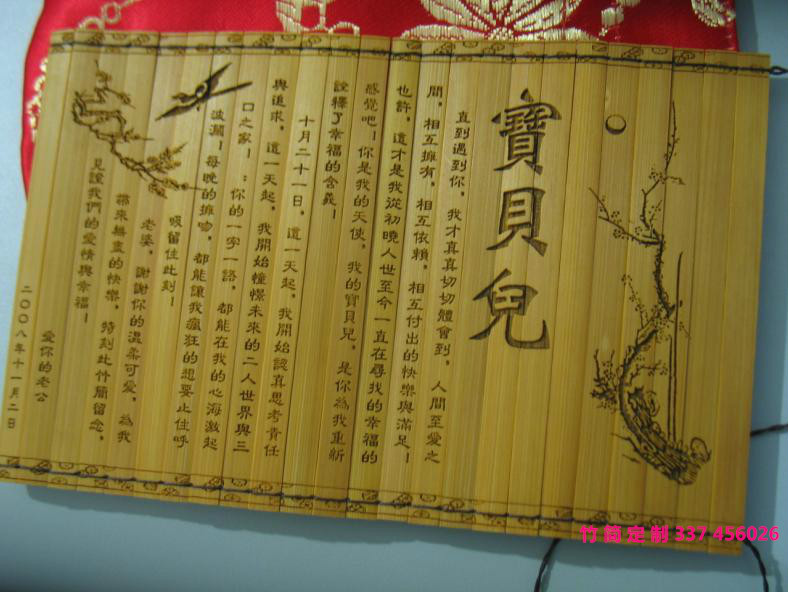 寶貝兒
直到遇到你，我才真真切切體會到，人間至愛之
間，相互擁有，相互依賴，相互付出的快樂與滿足！
也許，這才是我從初曉人世至今一直在尋找的幸福的
感覺吧！你是我的天使，我的寶貝兒，是你為我重新
詮釋了幸福的含義！
十月二十一日，這一天起，我開始認真思考責任
與追求，這一天起，我開始憧憬未來的二人世界與三
口之家！：你的一字一語，都能在我的心海激起
波瀾！每晚的擁吻，都能讓我瘋狂的想要止住呼
吸留住此刻！
老婆，謝謝你的溫柔可愛，為我
帶來無盡的快樂，特刻此竹簡留念，
見證我們的愛情與幸福！
愛你的老公
二〇〇八年十一月二日
竹简定制 337 456026